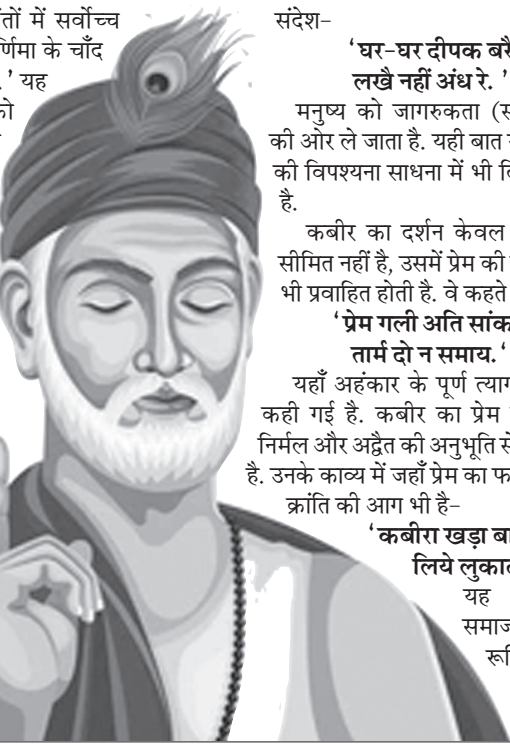 ंतों में सर्वोच्च
र्णिमा के चाँद
.' यह
को
संदेश-
'घर-घर दीपक बरै
लखै नहीं अंध रे. '
मनुष्य को जागरुकता
की ओर ले जाता है. यही बात
की विपश्यना साधना में भी
है.
कबीर का दर्शन केवल
सीमित नहीं है, उसमें प्रेम की
भी प्रवाहित होती है. वे कहते
'प्रेम गली अति सांक
तार्म दो न समाय.'
यहाँ अहंकार के पूर्ण त्याग
कही गई है. कबीर का प्रेम
निर्मल और अद्वैत की अनुभूति से
है. उनके काव्य में जहाँ प्रेम का
क्रांति की आग भी है-
'कबीरा खड़ा
लिये
यह
समाज